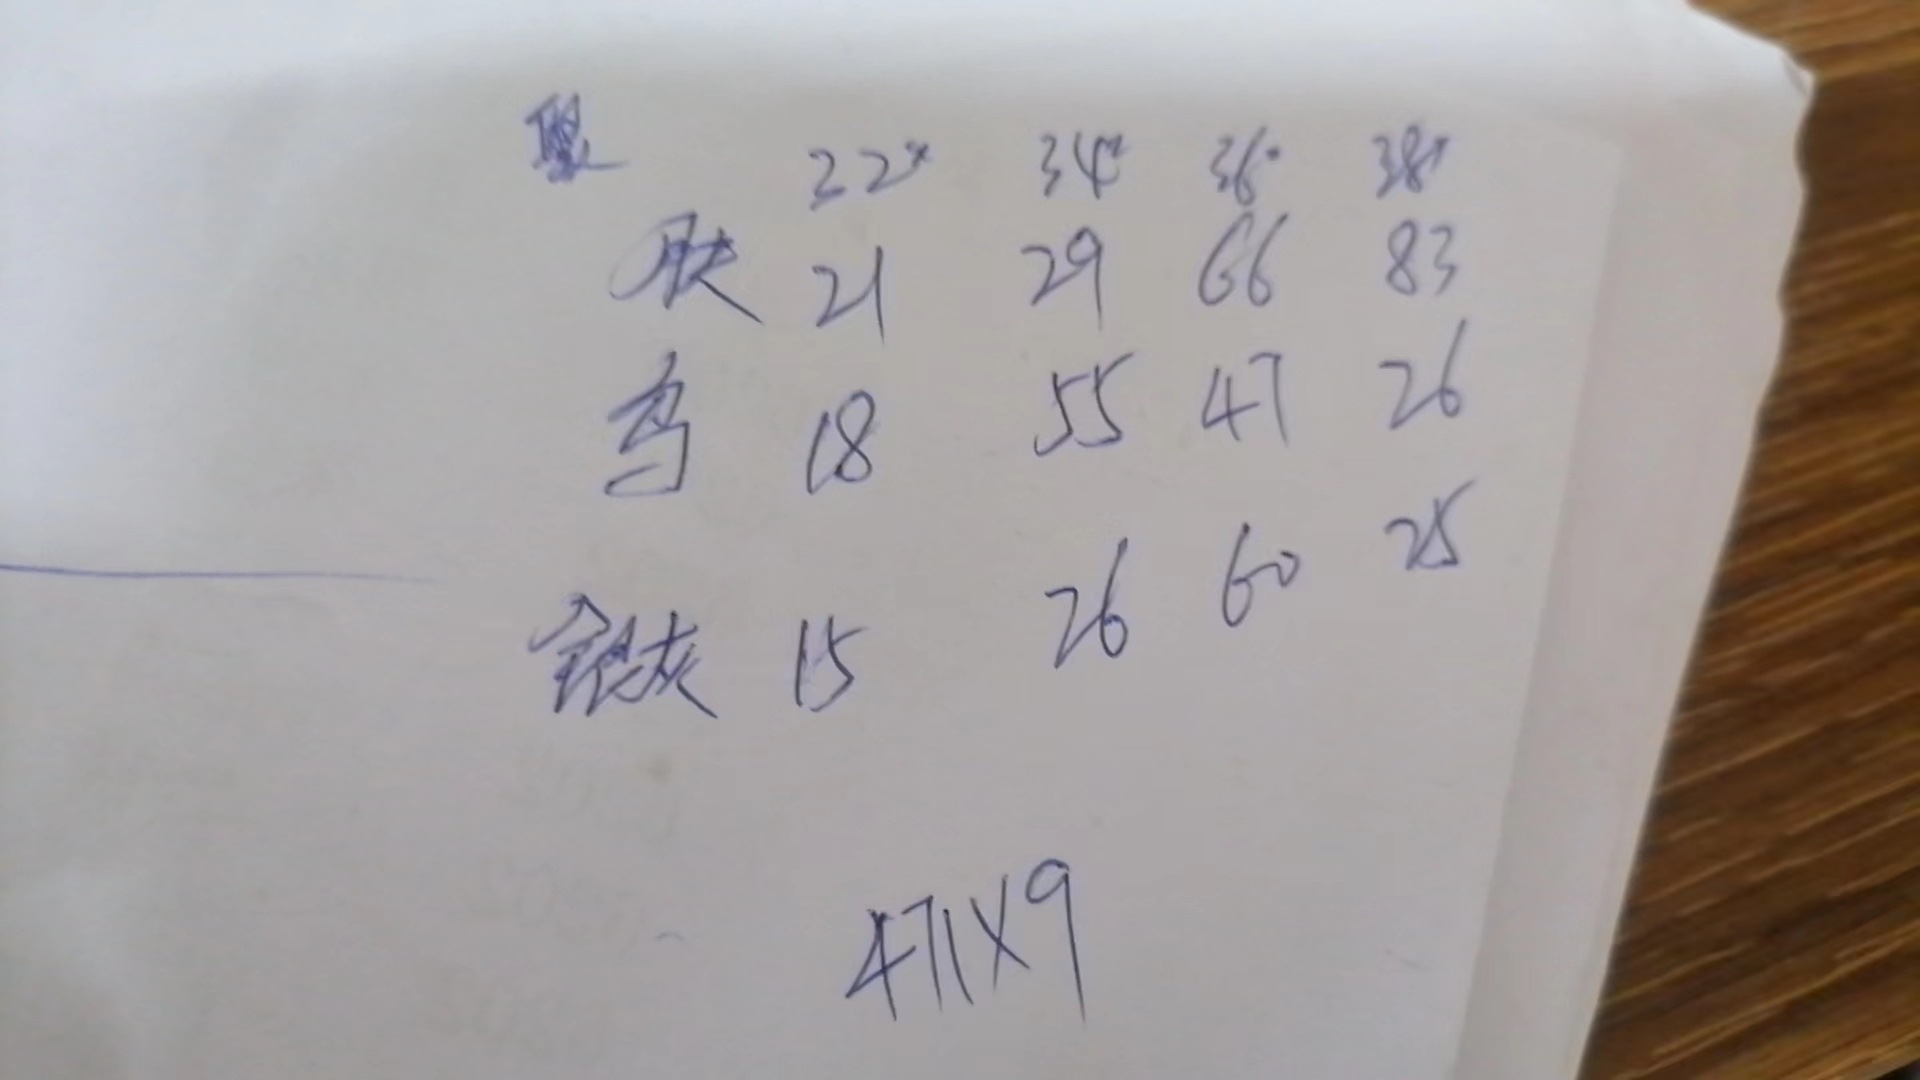 32# 34# 36# 38#
肤 21 29 66 83
18 55 47 26
银灰 15 26 60 25
471×9